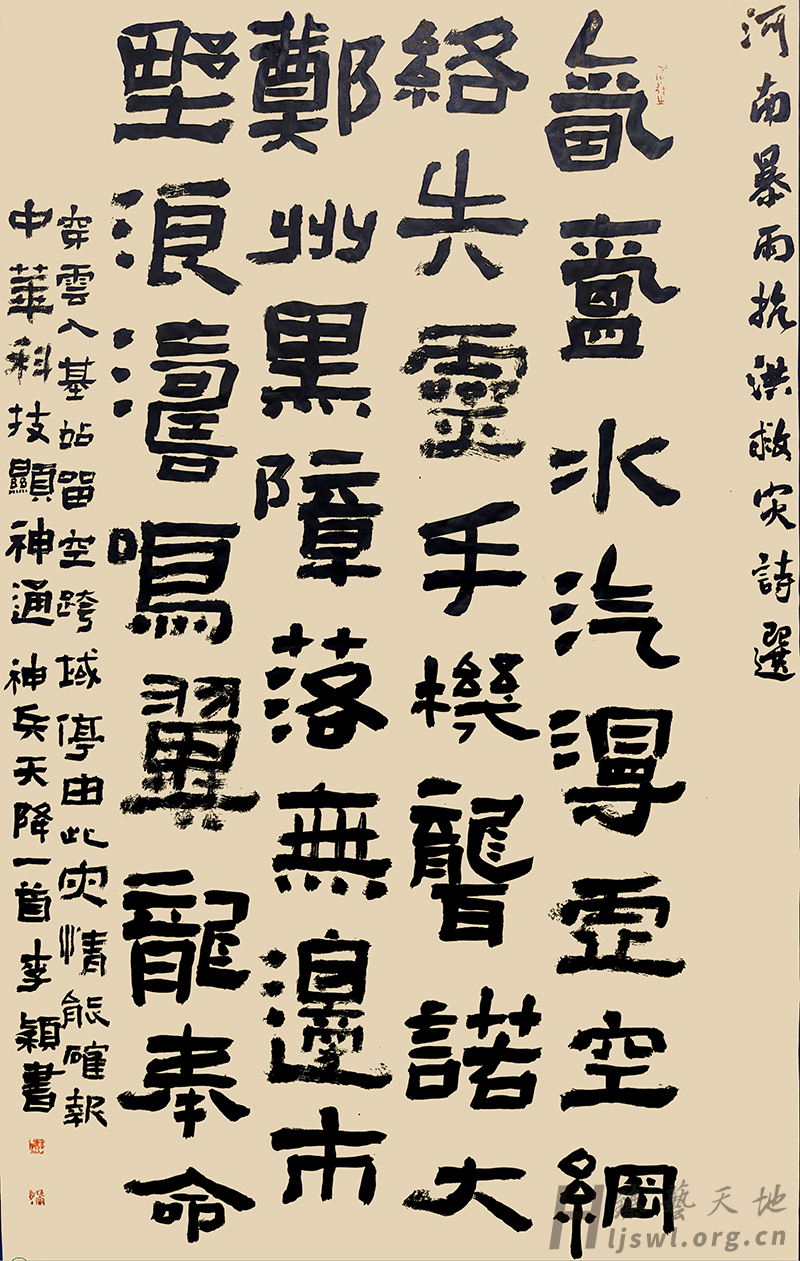 河南暴雨抗洪救灾詩選
氤氲水汽歪空網
絡失靈手機聾諾大
鄭州黑障落無邊市
野浪濤鳴翼龍奉命
穿雲入基站留空跨域停由此灾情能確報
中華科技顯神通 神兵天降一首 李穎書
藝天地
ljswl.org.cn